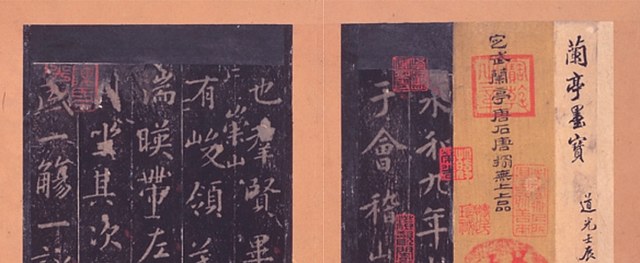 蘭亭墨寶
道光壬辰
定武蘭亭唐石唐搨無上上品
永和九年
于會稽山
也羣賢畢
有崇山峻領茂
湍暎帶左
坐其次
盛一觴一詠